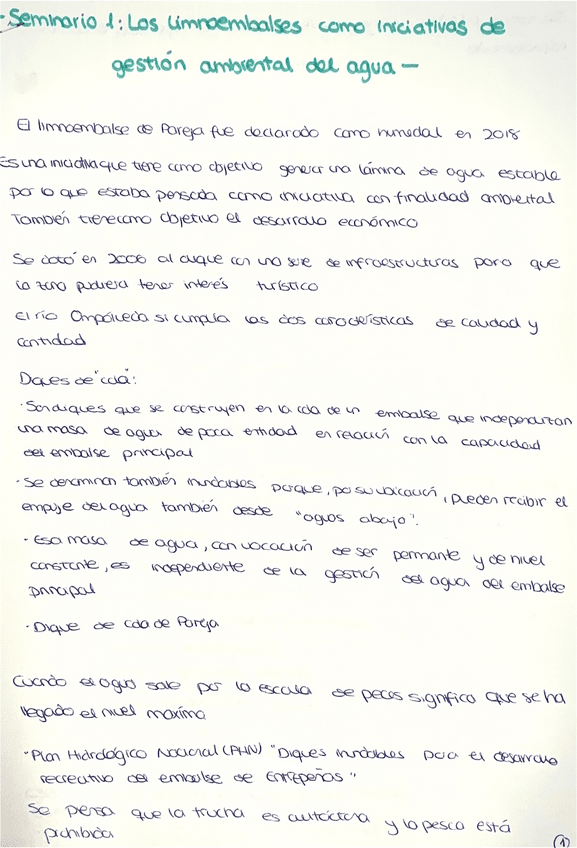 - Seminario 1: Los limnoembalses como iniciativas de
gestión ambiental del agua -
El limnoembalse de Pareja fue declarado como humedal en 2018
Es una iniciativa que tiene como objetivo generar una lámina de agua estable
por lo que estaba pensada como iniciativa con finalidad ambiental
También tiene como objetivo el desarrollo económico
Se dotó en 2006 al duque con una serie de infraestructuras para que
la zona pudiera tener interés turístico
El río Ompólveda si cumplía las dos características de calidad y
cantidad
Diques de "cola":
· Son diques que se construyen en la cola de un embalse que independizan
una masa de agua de poca entidad en relación con la capacidad
del embalse principal
· Se denominan también inundables porque, por su ubicación, pueden recibir el
empuje del agua también desde "aguas abajo".
· Esa masa de agua, con vocación de ser permante y de nivel
constante, es independiente de la gestión del agua del embalse
principal
· Dique de cola de Pareja
Cuando el agua sale por la escala de peces significa que se ha
llegado el nivel maximo
"Plan Hidrológico Nacional (PHN) "Diques inundables para el desarrollo
recreativo del embalse de Entrepeñas"
Se pensa que la trucha es autóctona y la pesca está
prohibida
1